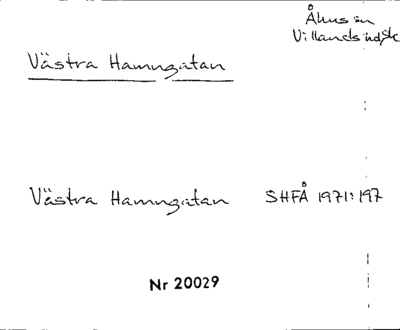 Åhus sn
Villands hd, Sk
Västra Hamngatan
Västra Hamngatan SHFÅ 1971:197
Nr 20029